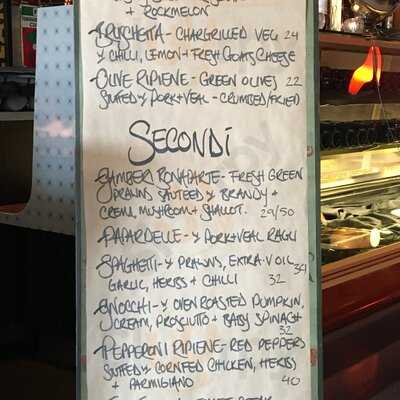 + ROCKMELON
BRUSCHETTA - CHARGRILLED VEG 24
w CHILLI, LEMON + FRESH GOATS CHEESE
OLIVE RIPIENE - GREEN OLIVES 22
STUFFED w PORK + VEAL - CRUMBED/FRIED
SECONDI
GAMBERI BONAPARTE - FRESH GREEN
PRAWNS SAUTEED w BRANDY +
CREAM, MUSHROOM + SHALLOT. 29/50
PAPARDELLE - w PORK + VEAL RAGU
SPAGHETTI - w PRAWNS, EXTRA·V·OIL 34
GARLIC, HERBS + CHILLI 32
GNOCCHI - w OVEN ROASTED PUMPKIN,
CREAM, PROSCIUTTO + BABY SPINACH
32
PEPPERONI RIPIENE - RED PEPPERS
STUFFED w CORNFED CHICKEN, HERBS
+ PARMIGIANO 40